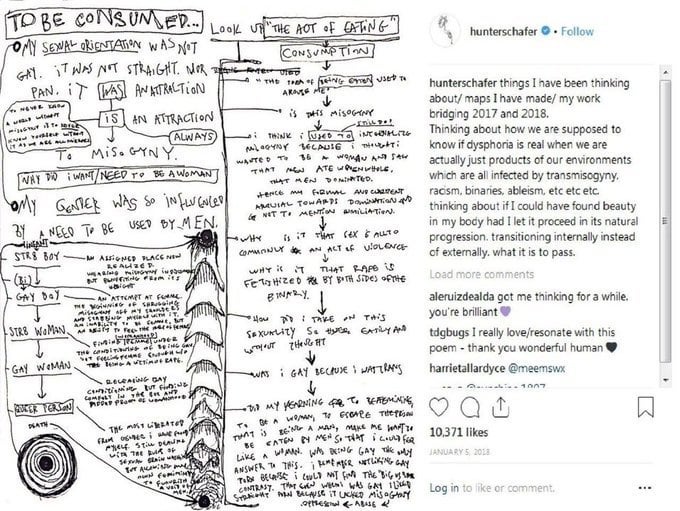 TO BE CONSUMED...
LOOK UP "THE ACT OF EATING"
MY SEXUAL ORIENTATION WAS NOT
GAY. IT WAS NOT STRAIGHT. NOR
PAN. IT WAS AN ATTRACTION
TO NEVER KNOW
A WORLD WITHOUT
MISOGYNY IS TO NEVER
KNOW YOURSELF WITHOUT
IT AS WE ARE ALL
IS AN ATTRACTION
(ALWAYS)
TO MISOGYNY.
WHY DID I WANT/NEED TO BE A WOMAN
MY GENDER WAS SO INFLUENCED
BY A NEED TO BE USED BY MEN.
INFANT
STR8 BOY — AN ASSIGNED PLACE NOW
REALIZED.
WEARING MISOGYNY
BUT BENEFITING FROM ITS
WEIGHT
(Bi)
GAY BOY — AN ATTEMPT AT FEMME.
THE BEGINNING OF SHRUGGING
MISOGYNY OFF MY SHOULDERS
AND STABBING MYSELF WITH IT.
AN INABILITY TO BE FEMME, BUT
AN ABILITY TO FEEL THE
STR8 WOMAN
FINDING FEMME UNDER
THE CONDITIONING OF BEING GAY
YET FEELING FEMME ENOUGH
THE BEING A VICTIM OF RAPE.
GAY WOMAN
RELEASING GAY
CONDITIONING BUT FINDING
COMFORT IN THE
OF WOMANHOOD
QUEER PERSON
THE MOST LIBERATED
FROM GENDER I HAVE FOUND
MYSELF. STILL DEALING
WITH THE
SEXUAL
BUT
FEMININITY
TO
A VOID OF
MEN.
DEATH
CONSUMPTION
USED
"THE IDEA OF BEING EATEN USED TO
AROUSE ME"
IS THIS MISOGYNY
STILL DO!
I THINK I USED TO INTERNALIZE
MISOGYNY BECAUSE I THOUGHT I
WANTED TO BE A WOMAN AND SAW
THAT MEN ATE WOMEN WHOLE,
THAT MEN DOMINATED.
HENCE MY FORMAL AND CURRENT
AROUSAL TOWARDS DOMINATION AND
& NOT TO MENTION HUMILIATION.
WHY IS IT THAT SEX IS ALSO
COMMONLY AN ACT OF VIOLENCE
WHY IS IT THAT RAPE IS
FETISHIZED BY BOTH SIDES OF THE
BINARY.
HOW DID I TAKE ON THIS
SEXUALITY SO EASILY AND
WITHOUT THOUGHT
WAS I GAY BECAUSE I WAS TRANS
DID MY YEARNING TO BE FEMININE,
TO BE A WOMAN, TO ESCAPE THE PRISON
THAT IS BEING A MAN, MAKE ME WANT TO
BE EATEN BY MEN SO THAT I COULD FEEL
LIKE A WOMAN. WAS BEING GAY THE ONLY
ANSWER TO THIS. I REMEMBER NOT LIKING GAY
PORN BECAUSE I COULD NOT FIND THE
CONTRAST. THAT EVEN WHEN I WAS GAY I LIKED
STRAIGHT PORN BECAUSE IT LACKED MISOGYNY
OPPRESSION & ABUSE &
hunterschafer • Follow
hunterschafer things I have been thinking
about/ maps I have made/ my work
bridging 2017 and 2018.
Thinking about how we are supposed to
know if dysphoria is real when we are
actually just products of our environments
which are all infected by transmisogyny.
racism, binaries, ableism, etc etc etc.
thinking about if I could have found beauty
in my body had I let it proceed in its natural
progression. transitioning internally instead
of externally. what it is to pass.
Load more comments
aleruizdealda got me thinking for a while.
you're brilliant 💜
tdgbugs I really love/resonate with this
poem - thank you wonderful human 🖤
harrietallardyce @meemswx
10,371 likes
JANUARY 5, 2018
Log in to like or comment.